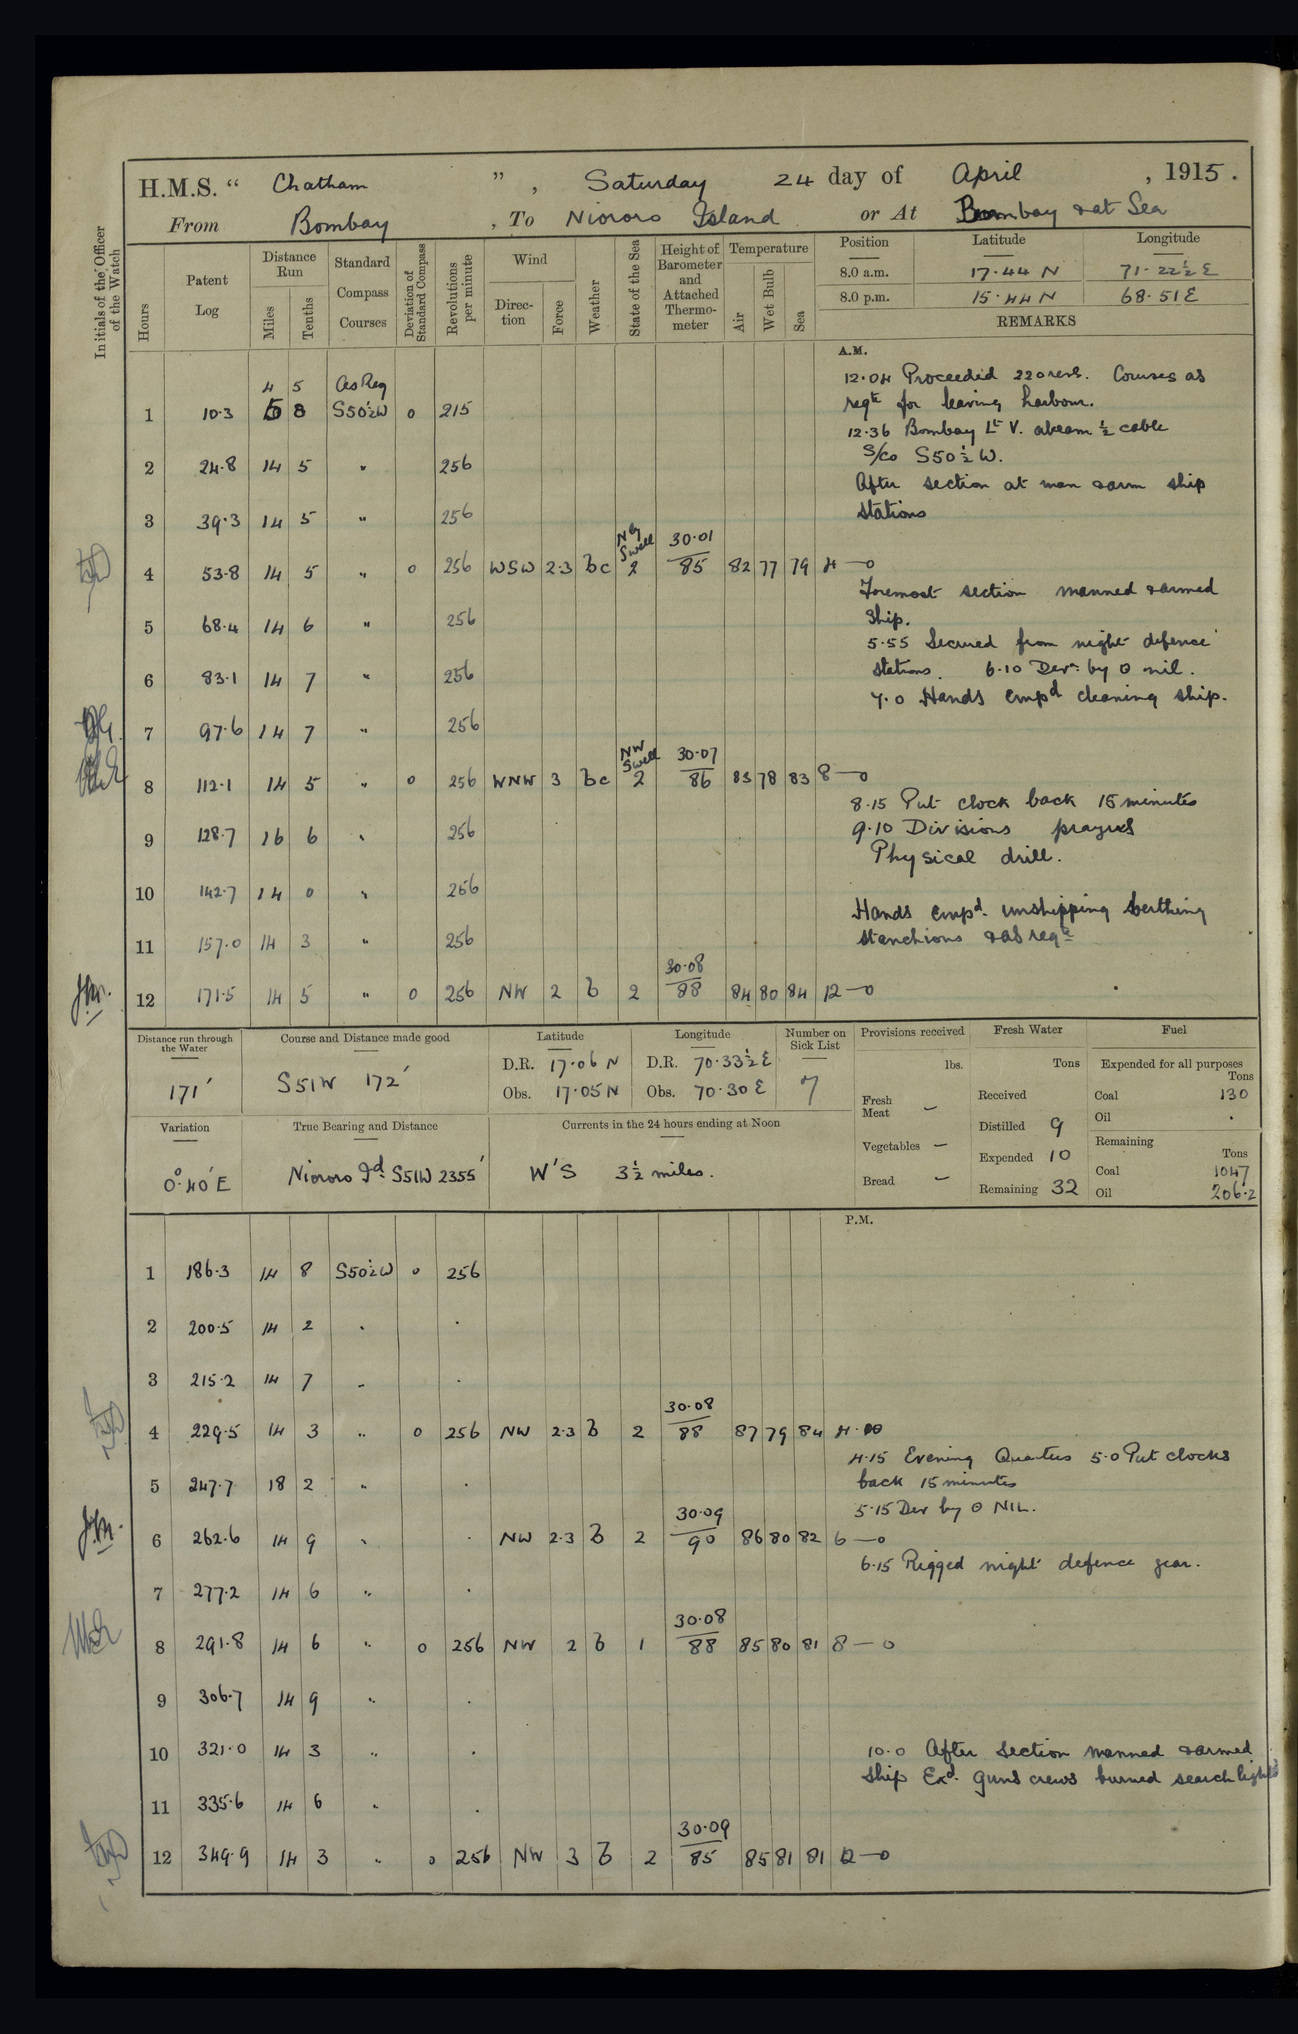 H.M.S. “ Chatham ” , Saturday 24 day of April , 1915 .
From Bombay , To Niororo Island or At Bombay & at Sea
Initials of the Officer of the Watch
Hours
Patent Log
Distance Run
Miles
Tenths
Standard Compass Courses
Deviation of Standard Compass
Revolutions per minute
Wind
Direction
Force
Weather
State of the Sea
Height of Barometer and Attached Thermometer
Temperature
Air
Wet Bulb
Sea
Position Latitude Longitude
8.0 a.m. 17·44 N 71·22½ E
8.0 p.m. 15·44 N 68·51 E
REMARKS
A.M.
4 5 As Req
1 10·3 5 8 S50½W 0 215
2 24·8 14 5 " 256
3 39·3 14 5 " 256
Nly Swell 30·01
4 53·8 14 5 " 0 256 WSW 2·3 bc 2 85 82 77 79 4—0
5 68·4 14 6 " 256
6 83·1 14 7 " 256
7 97·6 14 7 " 256
NW Swell 30·07
8 112·1 14 5 " 0 256 WNW 3 bc 2 86 83 78 83 8—0
9 128·7 16 6 " 256
10 142·7 14 0 " 256
11 157·0 14 3 " 256
30·08
12 171·5 14 5 " 0 256 NW 2 b 2 88 84 80 84 12—0
12·04 Proceeded 220 revs. Courses as
reqte for leaving harbour.
12·36 Bombay Lt V. abeam ½ cable
S/co S50½W.
After section at man & arm ship
stations
Foremost section manned & armed
Ship.
5·55 Secured from night defence
stations. 6·10 Devn by 0 nil.
7·0 Hands empd cleaning ship.
8·15 Put clock back 15 minutes
9·10 Divisions prayers
Physical drill.
Hands empd unshipping berthing
stanchions & as reqte
Distance run through the Water
171'
Course and Distance made good
S51W 172'
Latitude
D.R. 17·06 N
Obs. 17·05 N
Longitude
D.R. 70·33½ E
Obs. 70·30 E
Number on Sick List
7
Provisions received
lbs.
Fresh Meat —
Vegetables —
Bread —
Fresh Water
Tons
Received
Distilled 9
Expended 10
Remaining 32
Fuel
Expended for all purposes
Tons
Coal 130
Oil .
Remaining
Tons
Coal 1047
Oil 206·2
Variation
0°·40' E
True Bearing and Distance
Niororo Id S51W 2355'
Currents in the 24 hours ending at Noon
W'S 3½ miles.
P.M.
1 186·3 14 8 S50½W 0 256
2 200·5 14 2 " .
3 215·2 14 7 " .
30·08
4 229·5 14 3 " 0 256 NW 2·3 b 2 88 87 79 84 4·00
5 247·7 18 2 " .
30·09
6 262·6 14 9 " . NW 2·3 b 2 90 86 80 82 6—0
7 277·2 14 6 " .
30·08
8 291·8 14 6 " 0 256 NW 2 b 1 88 85 80 81 8—0
9 306·7 14 9 " .
10 321·0 14 3 " .
11 335·6 14 6 " .
30·09
12 349·9 14 3 " 0 256 NW 3 b 2 85 85 81 81 12—0
4·15 Evening Quarters 5·0 Put clocks
back 15 minutes
5·15 Dev by 0 NIL.
6·15 Rigged night defence gear.
10·0 After section manned & armed
ship Exd. guns crews burned searchlights